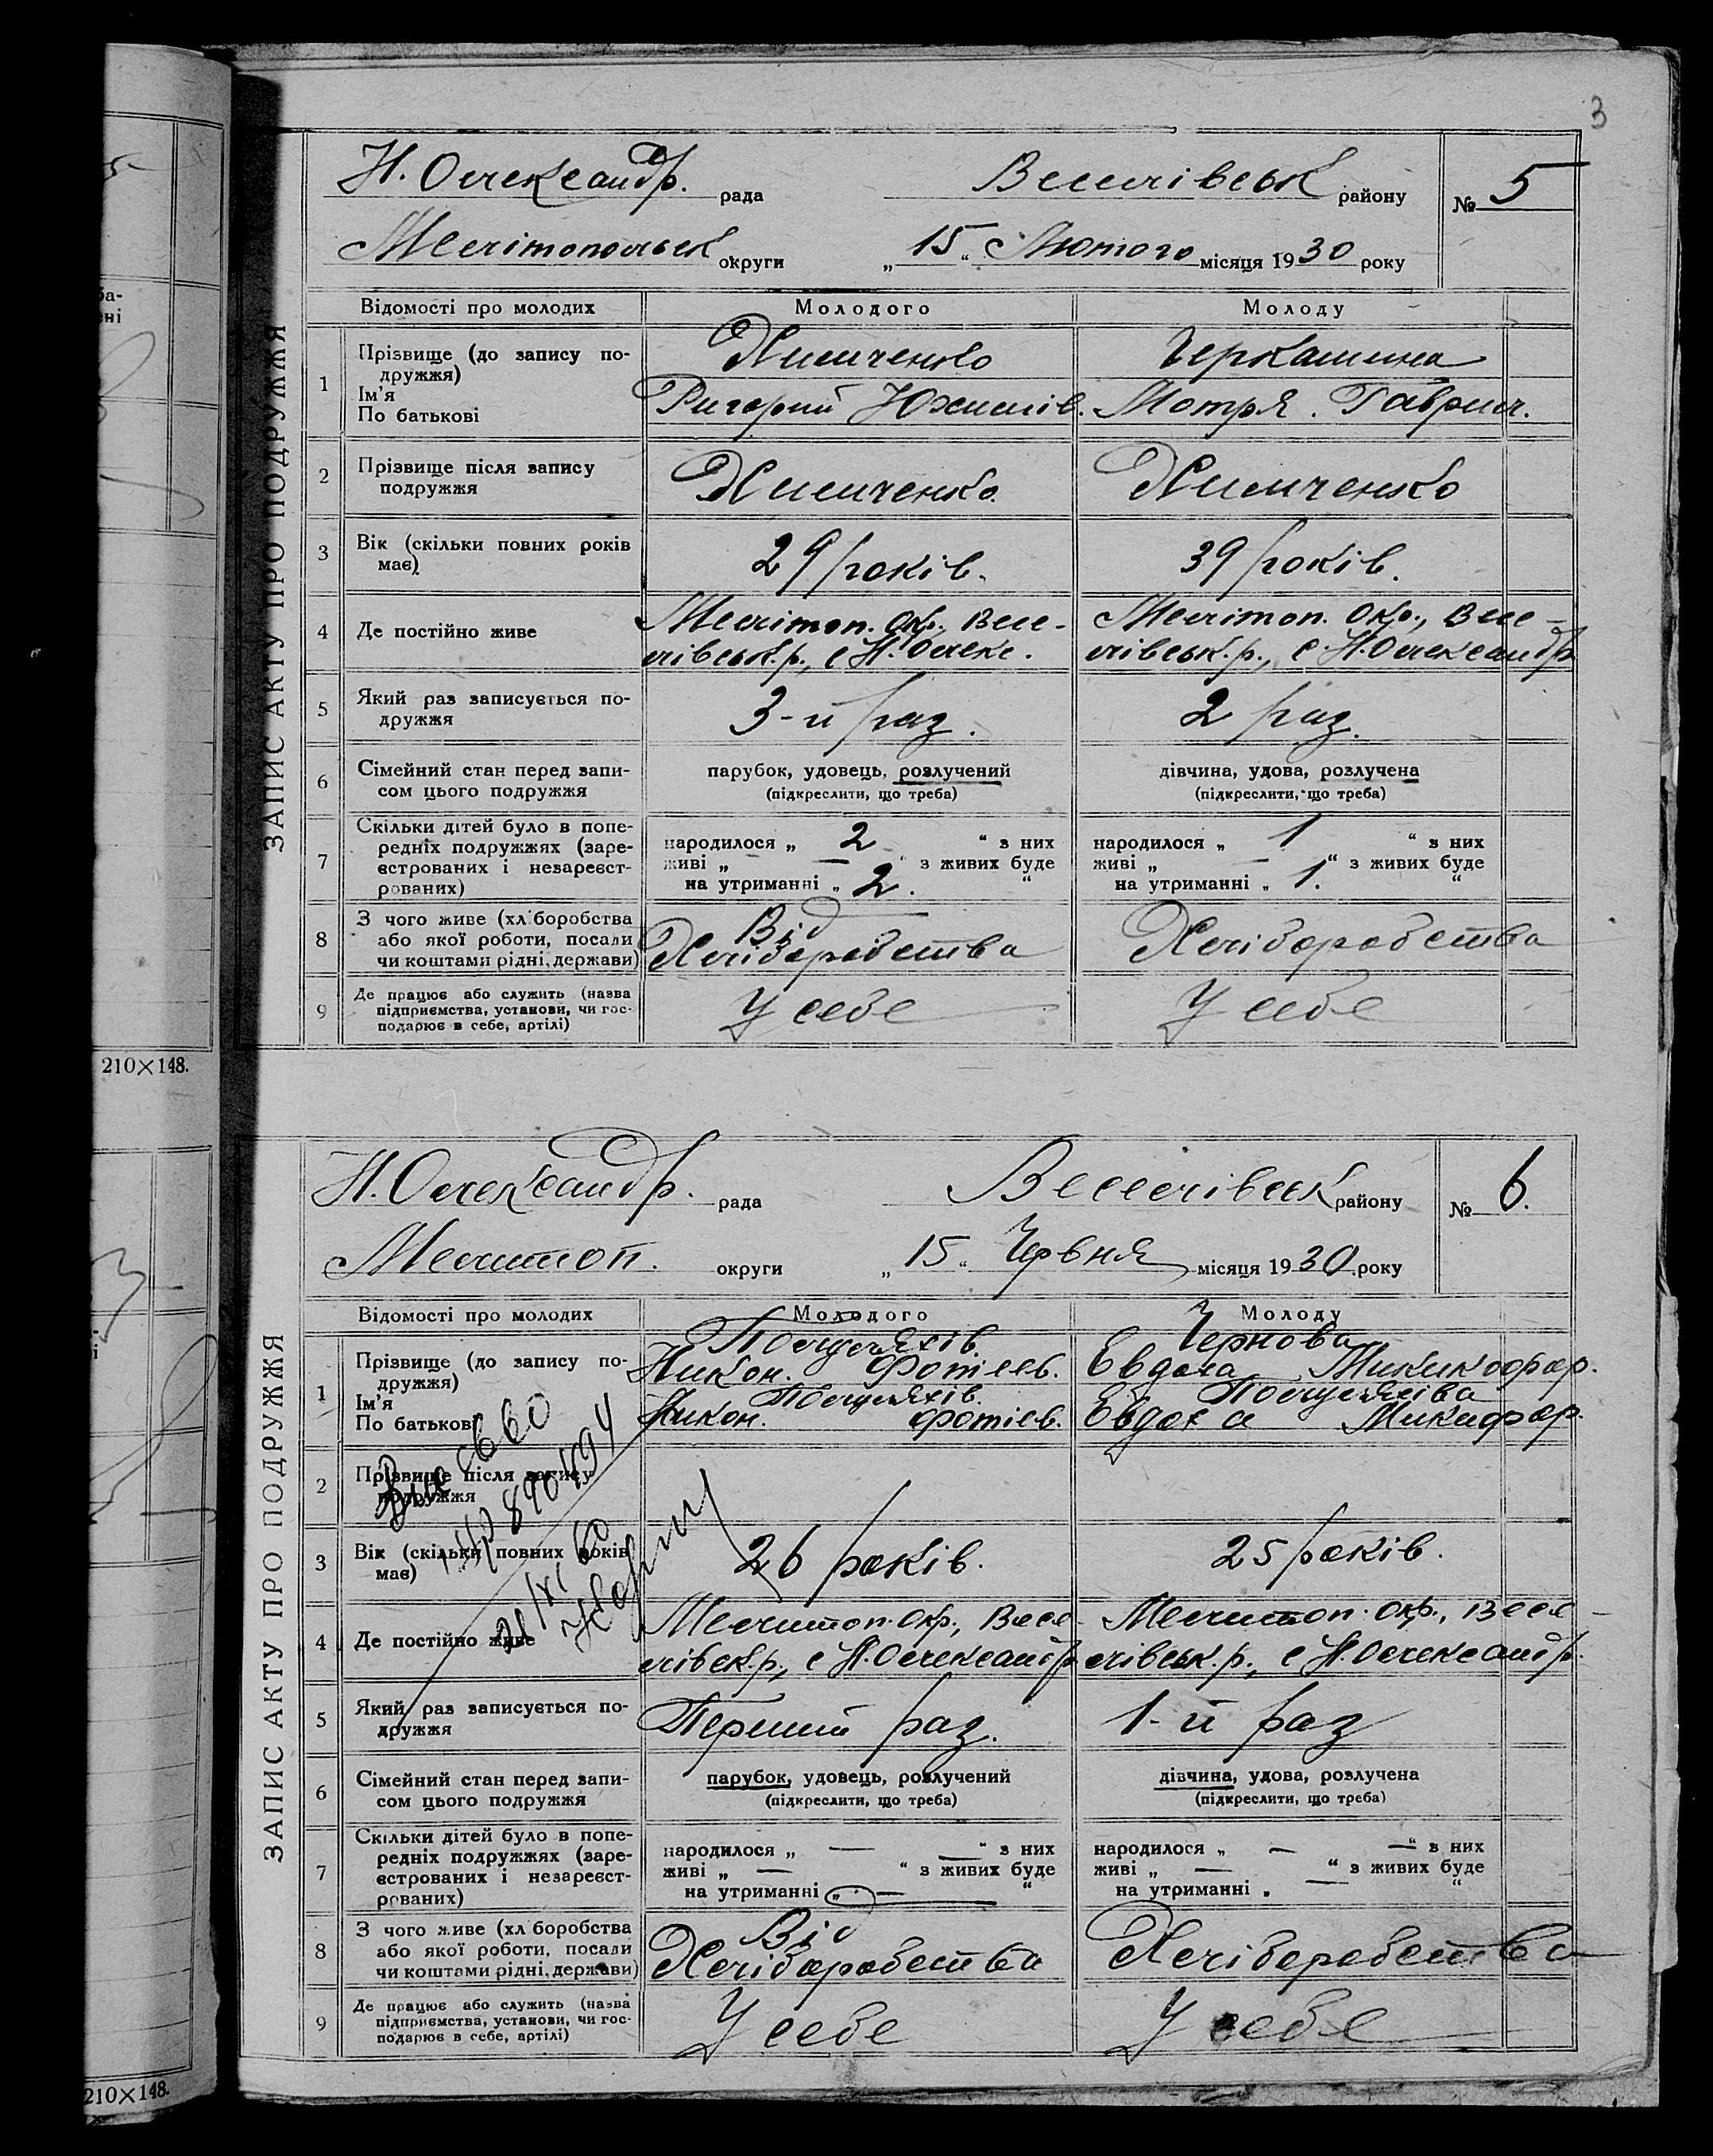 3
Н. Олександр. рада Веселівськ району № 5
Мелітопольськ округи „15“ Лютого місяця 1930 року
ЗАПИС АКТУ ПРО ПОДРУЖЖЯ
Відомості про молодих Молодого Молоду
1 Прізвище (до запису по-
дружжя)
Ім'я
По батькові
Химченко Черкашина
Григорий Юхимів. Мотря. Гаврил.
2 Прізвище після запису
подружжя
Химченко Химченко
3 Вік (скільки повних років
має)
29 років. 39 років.
4 Де постійно живе
Мелітоп. Окр., Весе-
лівськ. р., с Н. Олекс.
Мелітоп. Окр., Весе-
лівськ. р., с. Н. Олександр
5 Який раз записується по-
дружжя
3-й раз. 2 раз.
6 Сімейний стан перед запи-
сом цього подружжя
парубок, удовець, розлучений
(підкреслити, що треба)
дівчина, удова, розлучена
(підкреслити, що треба)
7 Скільки дітей було в попе-
редніх подружжях (заре-
єстрованих і незареєст-
рованих)
народилося „ 2 “ з них
живі „ — “ з живих буде
на утриманні „ 2. “
народилося „ 1 “ з них
живі „ — “ з живих буде
на утриманні „ 1. “
8 З чого живе (хліборобства
або якої роботи, посади
чи коштами рідні, держави)
Від
Хліборобства
Хліборобства
9 Де працює або служить (назва
підприємства, установи, чи гос-
подарює в себе, артілі)
У себе У себе
210×148.
Н. Олександр. рада Веселівськ району № 6.
Мелитоп. округи „15“ Червня місяця 1930 року
ЗАПИС АКТУ ПРО ПОДРУЖЖЯ
Відомості про молодих Молодого Молоду
1 Прізвище (до запису по-
дружжя)
Ім'я
По батькові
Полуляхів Чернова
Никон. Фотіев. Евдоха Микикофор.
Полуляхів. Полуляхіва
Никон. Фотіев. Евдоха Микифор.
2 Прізвище після запису
подружжя
3 Вік (скільки повних років
має)
26 років. 25 років.
4 Де постійно живе
Мелитоп. окр., Весе-
лівск. р., с Н. Олександр
Мелитоп. окр., Весе-
лівськ. р., с Н. Олександр.
5 Який раз записується по-
дружжя
Перший раз. 1-й раз
6 Сімейний стан перед запи-
сом цього подружжя
парубок, удовець, розлучений
(підкреслити, що треба)
дівчина, удова, розлучена
(підкреслити, що треба)
7 Скільки дітей було в попе-
редніх подружжях (заре-
єстрованих і незареєст-
рованих)
народилося „ — “ з них
живі „ — “ з живих буде
на утриманні „ — “
народилося „ — “ з них
живі „ — “ з живих буде
на утриманні „ — “
8 З чого живе (хліборобства
або якої роботи, посади
чи коштами рідні, держави)
Від
Хліборобства
Хліборобства
9 Де працює або служить (назва
підприємства, установи, чи гос-
подарює в себе, артілі)
У себе У себе
210×148.